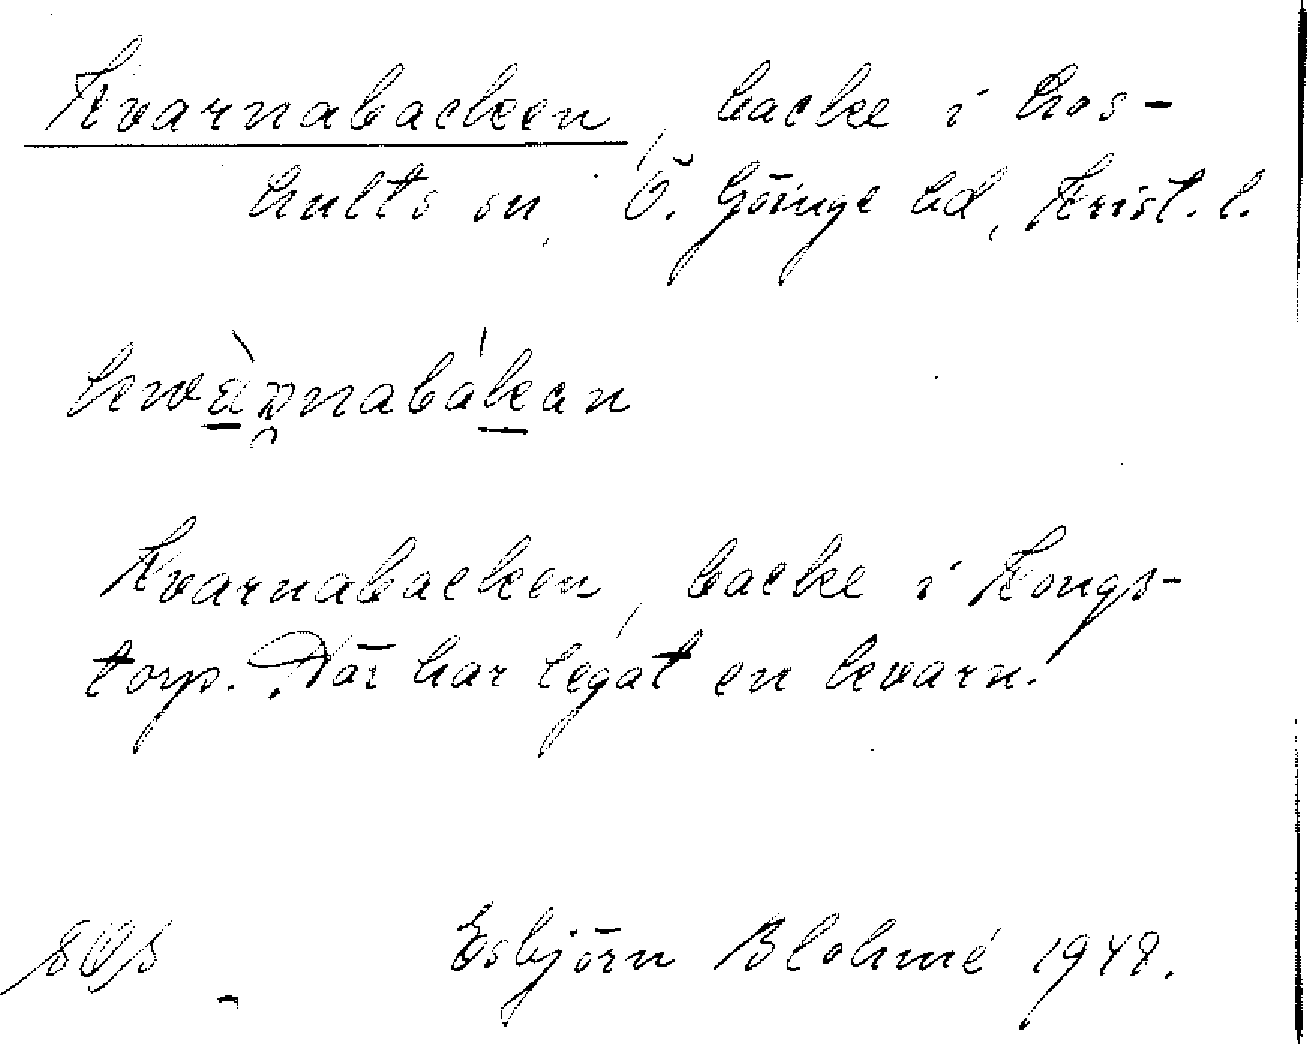 Kvarnabacken, backe i Hos-
hults sn, Ö. Göinge hd, Krist. l.
Kvarnabacken, backe i Kongs-
torp. Där har legat en kvarn.
Esbjörn Blohmé 1948.